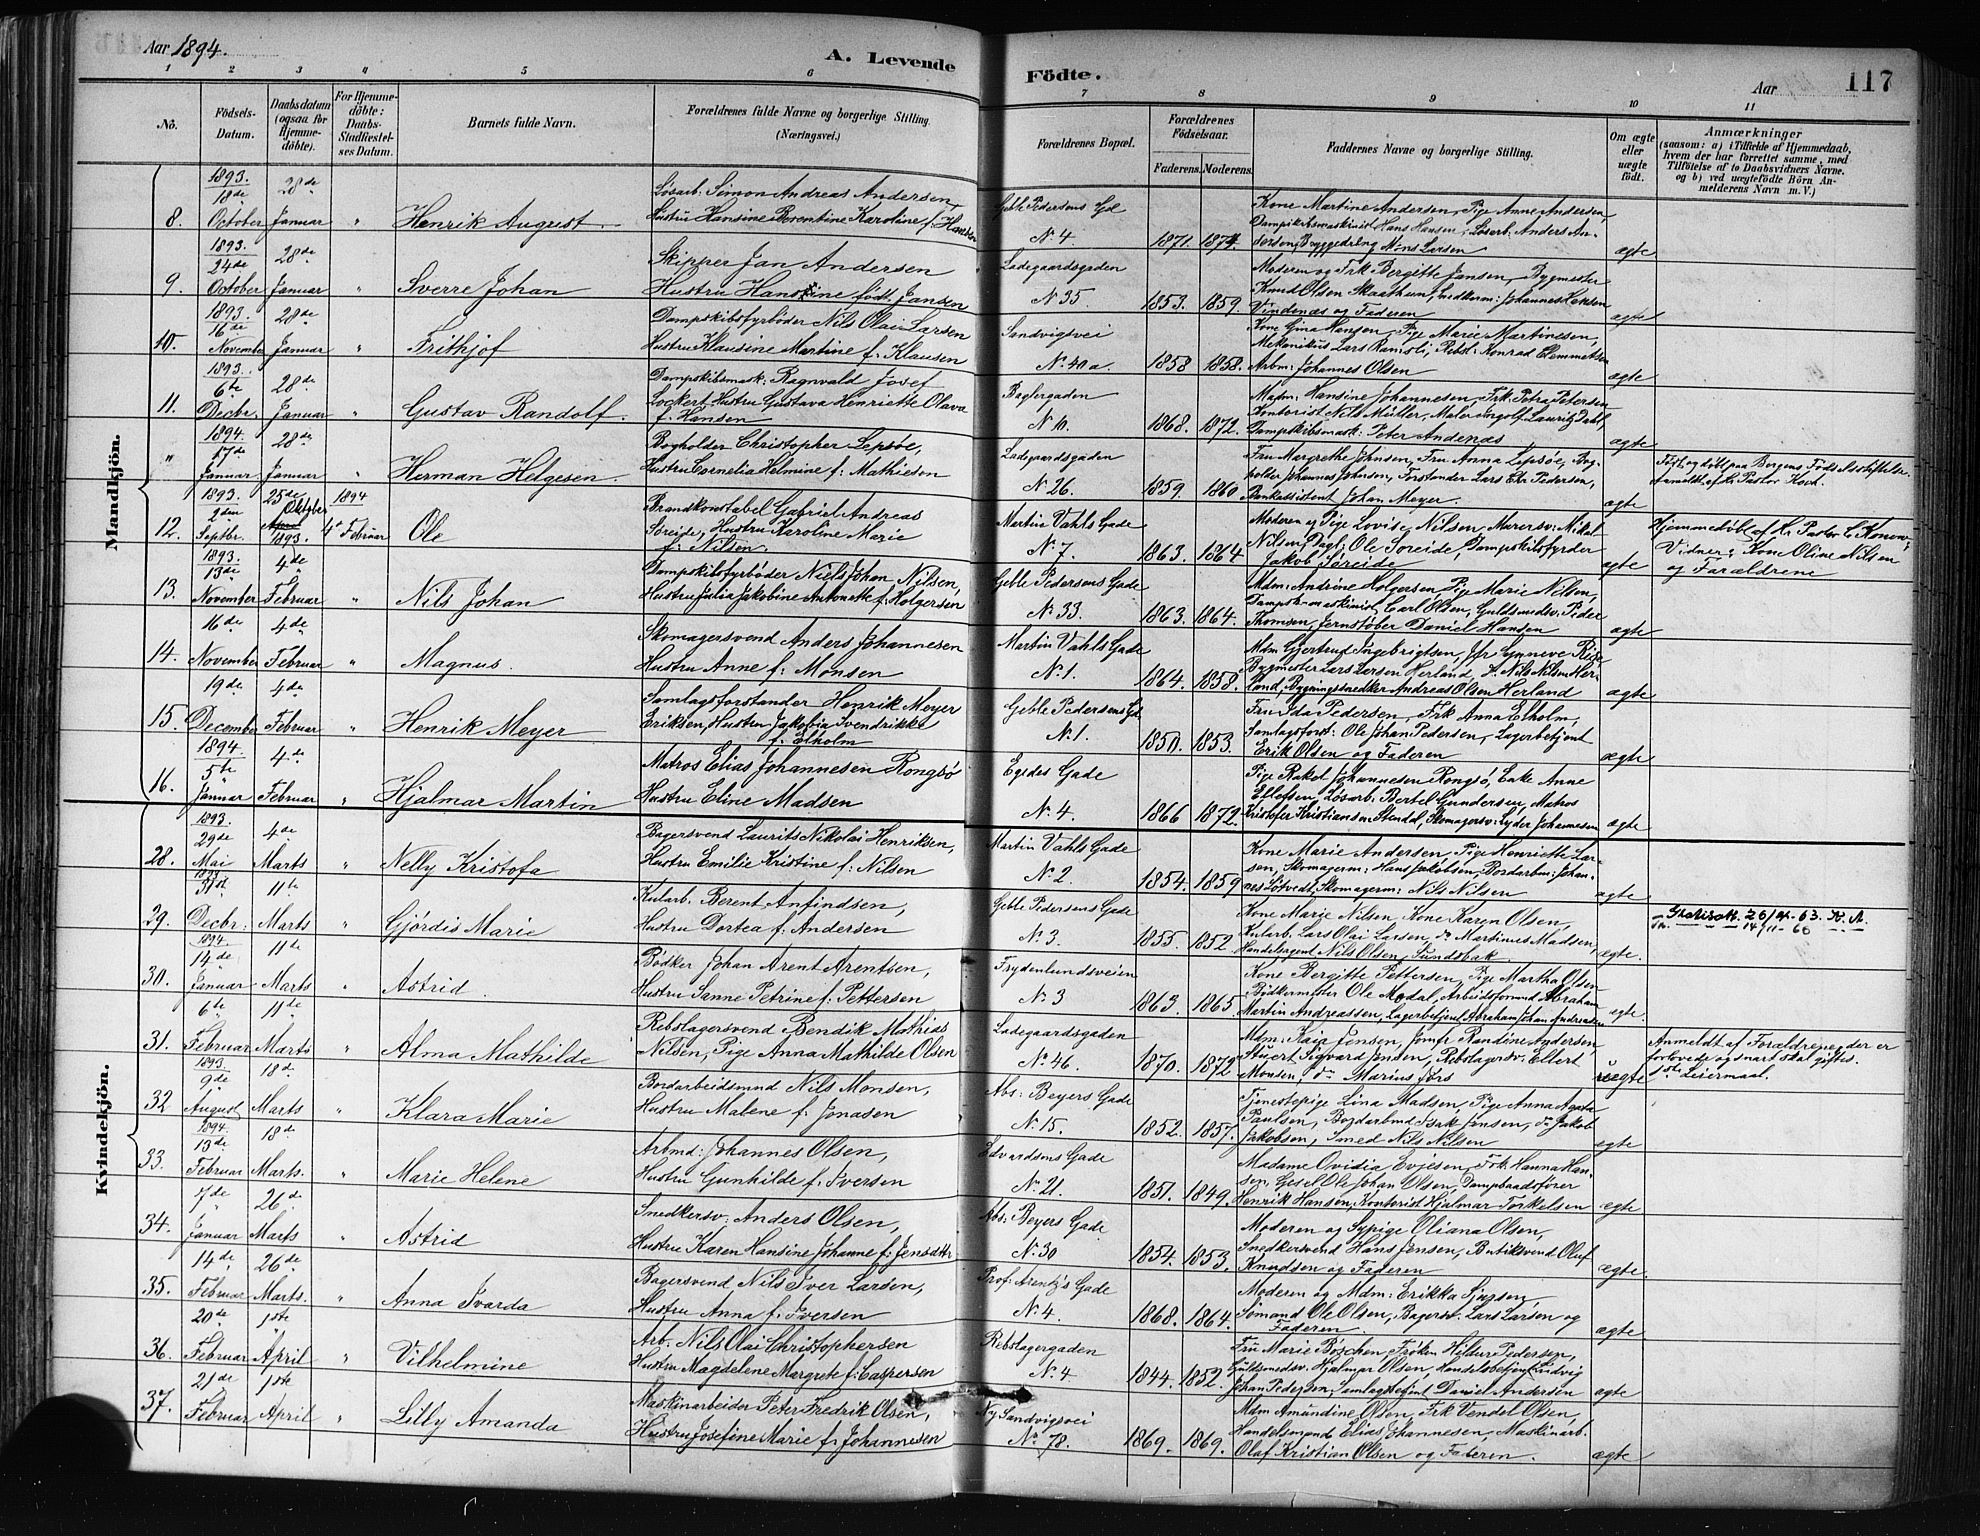 Aar 1894.
A. Levende Födte.
Aar
117
1 2 3 4 5 6 7 8 9 10 11
Nô.
Födsels-Datum.
Daabsdatum (ogsaa for Hjemmedöbte).
For Hjemmedöbte: Daabs-Stadfæstelses Datum.
Barnets fulde Navn.
Forældrenes fulde Navne og borgerlige Stilling. (Næringsvei.)
Forældrenes Bopæl.
Forældrenes Födselsaar.
Faderens. Moderens.
Faddernes Navne og borgerlige Stilling.
Om ægte eller uægte födt.
Anmærkninger (saasom: a) i Tilfælde af Hjemmedaab, hvem der har forrettet samme, med Tilföielse af to Daabsvidners Navne. og b) ved uægtefödte Börn Anmelderens Navn m. V.)
Mandkjön.
8. 1893. 18de October 28de Januar " Henrik August
Lösarb: Simon Andreas Andersen,
Hustru Hansine Berentine Karoline f. Hansen
Geble Pedersens Gd No 4 1871. 1874.
Kone Martine Andersen, Pige Anne Andersen
Dampskibsmaskinist Hans Hansen, Lösarb: Anders Andersen, Byggedreng Mons Larsen ægte
9. 1893. 24de October 28de Januar " Sverre Johan
Skipper Jan Andersen
Hustru Hansine födt Jansen
Ladegaardsgaden No 35 1853. 1859.
Moderen og Frk Bergitte Jansen, Bygmester
Knud Olsen Skaathun, Snedkerm: Johannes Hansen
Vindenæs og Faderen ægte
10. 1893. 16de November 28de Januar " Frithjof
Dampskibsfyrböder Nils Olai Larsen
Hustru Klausine Martine f. Klausen
Sandvigsvei No 40a 1858 1858.
Kone Gina Hansen, Pige Marie Martinesen,
Mekanikus Lars Ranisli, Rebsl: Konrad Clemmetsen
Arbm: Johannes Olsen ægte
11. 1893. 6te Decbr. 28de Januar " Gustav Randolf.
Dampskibsmask: Ragnvald Josef
Lockert, Hustru Gustava Henriette Olava
f. Hansen
Baglergaden No 10. 1868. 1872.
Madm: Hansine Johannesen, Frk Petra Petersen
Kontorist Nils Müller, Maler Ingolf Lauritz Dahl,
Dampskibsmask: Peter Andenæs ægte
" 1894. 17de Januar 28de Januar " Herman Helgesen
Bogholder Christopher Lepsöe,
Hustru Cornelia Helmine f. Mathiesen
Ladegaardsgaden No 26. 1859. 1860
Fru Margrethe Johnsen, Fru Anna Lepsöe, Bogholder Johannes Johnsen, Forstander Lars Chr Pedersen,
Bankassistent Johan Meyer. ægte
Födt og döbt paa Bergens Födselsstiftelse
Anmeldt af Hr. Pastor Koht.
12. 1893. 2den Septbr. 25de Oktober April 1893. 1894 4de Februar Ole
Brandkonstabel Gabriel Andreas
Söreide, Hustru Karoline Marie
f. Nilsen.
Martin Vahls Gade No 7. 1863. 1864
Moderen og Pige Lovise Nilsen, Murersv: Nikol
Nilsen, Dagl. Ole Söreide, Dampskibsfyrder
Jakob Söreide ægte
Hjemmedöbt af Hr. Pastor C. Konow
Vidner: Kone Oline Nilsen
og Forældrene
13. 1893. 13de November 4de Februar " Nils Johan
Dampskibsfyrböder Niels Johan Nilsen,
Hustru Julia Jakobine Antonette f. Holgersen
Geble Pedersens Gade No 33. 1863. 1864.
Mdm: Andrine Holgersen, Pige Marie Nilsen,
Dampsk-maskinist Carl Olsen, Guldsmedsv: Peder
Thomsen, Jernstöber Daniel Hansen ægte
14. 16de November 4de Februar " Magnus.
Skomagersvend Anders Johannesen
Hustru Anne f. Monsen
Martin Vahls Gade No 1. 1864. 1858.
Mdm Gjertrud Ingebrigtsen, Jfr Synneve
Bygmester Lars Larsen Herland, Nils Nilsen Herland, Bygningssnedker Andreas Olsen Herland ægte
15. 19de December 4de Februar " Henrik Meyer
Samlagsforstander Henrik Meyer
Eriksen, Hustru Jakobia Svendrikke
f. Elholm
Geble Pedersens Gd. No 1. 1850. 1853.
Fru Ida Pedersen, Frk Anna Elholm,
Samlagsforst: Ole Johan Pedersen, Lagerbetjent
Erik Olsen og Faderen ægte
16. 1894. 5te Januar 4de Februar " Hjalmar Martin
Matros Elias Johannesen Rongsö
Hustru Eline Madsen
Egedes Gade No 4. 1866 1872.
Pige Rakel Johannesen Rongsö, Enke Anne
Ellefsen, Lösarb: Bertel Gundersen, Matros
Kristofer Kristiansen Stendal, Skomagersv: Lyder Johannesen ægte
Kvindekjön.
28. 1893. 29de Mai 4de Marts " Nelly Kristofa
Bagersvend Laurits Nikolai Henriksen,
Hustru Emilie Kristine f. Nilsen
Martin Vahls Gade No 2. 1854. 1859
Kone Marie Andersen, Pige Henriette Larsen, Skomagerm: Hans Jakobsen, Bordarbm: Johannes Sötvedt, Skomagerm: Nils Nilsen ægte
29. 1893 31st Decbr: 11te Marts " Gjördis Marie
Kularb. Berent Anfindsen,
Hustru Dortea f. Andersen
Geble Pedersens Gade No 3. 1855. 1852.
Kone Marie Nilsen, Kone Karen Olsen,
Kularb. Lars Olai Larsen, do Martinus Madsen,
Handelsagent Nils Olsen, Sundsbak. ægte.
30. 1894. 14de Januar 11te Marts " Astrid.
Bödker Johan Arent Arentsen,
Hustru Sanne Petrine f. Pettersen
Frydenlundsveien No 3 1863. 1865.
Kone Bergitte Pettersen, Pige Martha Olsen
Bödkermester Ole Modal, Arbeidsformand Abraham
Martin Andreassen, Lagerbetjent Abraham Johan Andreasen ægte.
31. 6te Februar 11te Marts " Alma Mathilde
Rebslagersvend Bendik Mathias
Nilsen, Pige Anna Mathilde Olsen
Ladegaardsgaden No 46. 1870. 1872
Mdm: Kaia Jensen, Jomfr Randine Andersen,
Stuert Sigvard Jensen, Rebslagersv: Ellert
Monsen, do Marius Jörs uægte
Anmeldt af Forældrene, der er
forlovede og snart skal giftes.
1ste Leiermaal.
32 1893 9de August 18de Marts " Klara Marie
Bordarbeidsmnd Nils Monsen,
Hustru Malene f. Jonasen
Abs: Beyers Gade No 15. 1852. 1857.
Tjenestepige Lina Madsen, Pige Anna Agata
Paulsen, Bordarbmd Isak Jensen, do Jakob
Jakobsen, Smed Nils Nilsen ægte
33. 1894. 13de Februar 18de Marts. " Marie Helene
Arbmd: Johannes Olsen,
Hustru Gunhilde f. Iversen
Edvardsens Gade No 21. 1851. 1849.
Madame Ovidia Evjesen, Frk. Hanna Hansen, Gesel Ole Johan Olsen, Dampbaadsförer
Henrik Hansen, Kontorist Hjalmar Torkelsen ægte
34. 7de Januar 26de Marts " Astrid
Snedkersv: Anders Olsen,
Hustru Karen Hansine Johanne f. Jensdtr
Abs. Beyers Gade No 30 1854. 1853.
Moderen og Sypige Oliana Olsen,
Snedkersvend Hans Jensen, Butiksvend Oluf
Knudsen og Faderen ægte.
35. 14de Februar 26de Marts. " Anna Svarda
Bagersvend Nils Iver Larsen,
Hustru Anna f. Iversen
Prof: Arentz's Gade No 4. 1868. 1864.
Moderen og Mdm: Erikka Sjursen,
Sömand Ole Olsen, Bagersv: Lars Larsen og
Faderen. ægte
36. 20de Februar 1ste April " Vilhelmine
Arb. Nils Olai Christophersen
Hustru Magdelene Margrete f. Caspersen
Rebslagergaden No 4 1844. 1852.
Fru Marie Böschen, Fröken Hildur Pedersen,
Guldsmedsv: Hjalmar Olsen, Handelsbetjent Ludvig
Johan Pedersen, Samlagsbetjent Daniel Andersen ægte
37. 21de Februar 1ste April " Lilly Amanda
Maskinarbeider Peter Fredrik Olsen,
Hustru Josefine Marie f. Johannesen
Ny Sandvigsvei No 78. 1869. 1869.
Mdm Amundine Olsen, Frk Vendel Olsen,
Handelsmand Elias Johannesen, Maskinarb.
Olaf Kristian Olsen og Faderen. ægte